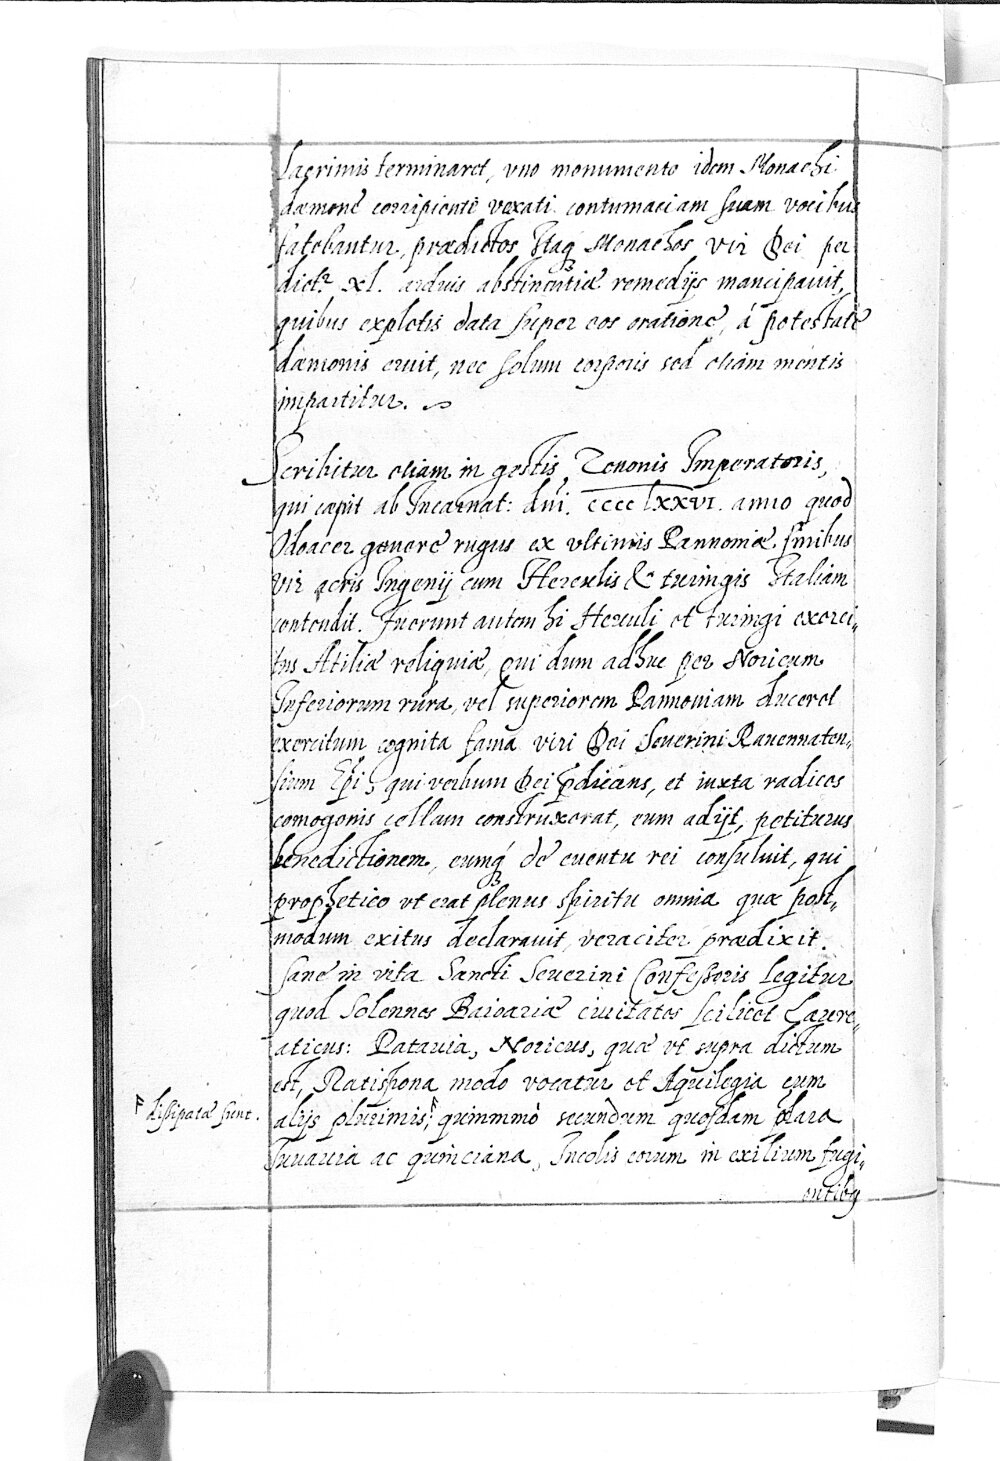 lacrimis terminaret, vno monumento idem Monachi
dæmone corripiente vexati contumaciam suam vocibus
fatebantur, prædictos Itaq; Monachos vir Dei per
dict? Xl. arduis abstinentiæ remedijs mancipauit,
quibus expletis data super eos oratione, á potestate
dæmonis eruit, nec solum corporis sed etiam mentis
impartitur.
Scribitur etiam in gestis Zenonis Imperatoris,
qui cæpit ab Incarnat: dñi. CCCCLXXVI. anno quod
Odoacer genere rugus ex vltimis Pannoniæ finibus
vir acris Ingenij cum Herculis & turingis Italiam
contendit. Fuerunt autem hi Heruli et turingi exerci„
tus Atiliæ reliquiæ, qui dum adhuc per Noricum
Inferiorum rura, vel superiorem Pannoniam duceret
exercitum cognita fama viri Dei Seuerini Rauennaten„
sium Epi, qui verbum Dei pdicans, et iuxta radices
comogenis cellam construxerat, eum adijt, petiturus
benedictionem, eumq; de euentu rei consuluit, qui
prophetico vt erat plenus spiritu omnia quæ post„
modum exitus declarauit, veraciter prædixit.
Sane in vita Sancti Seuerini Confessoris legitur
quod Solennes Baioariæ ciuitates scilicet Laure„
aticus: Patauia, Noricus, quæ vt supra dictum
est, Ratispona modo vocatur et Aquilegia cum
alijs plurimis; quimmmò secundum quosdam plara
Iuuauia ac quinciana, Incolis eorum in exilium fugi„
entibq
dissipatæ sunt.